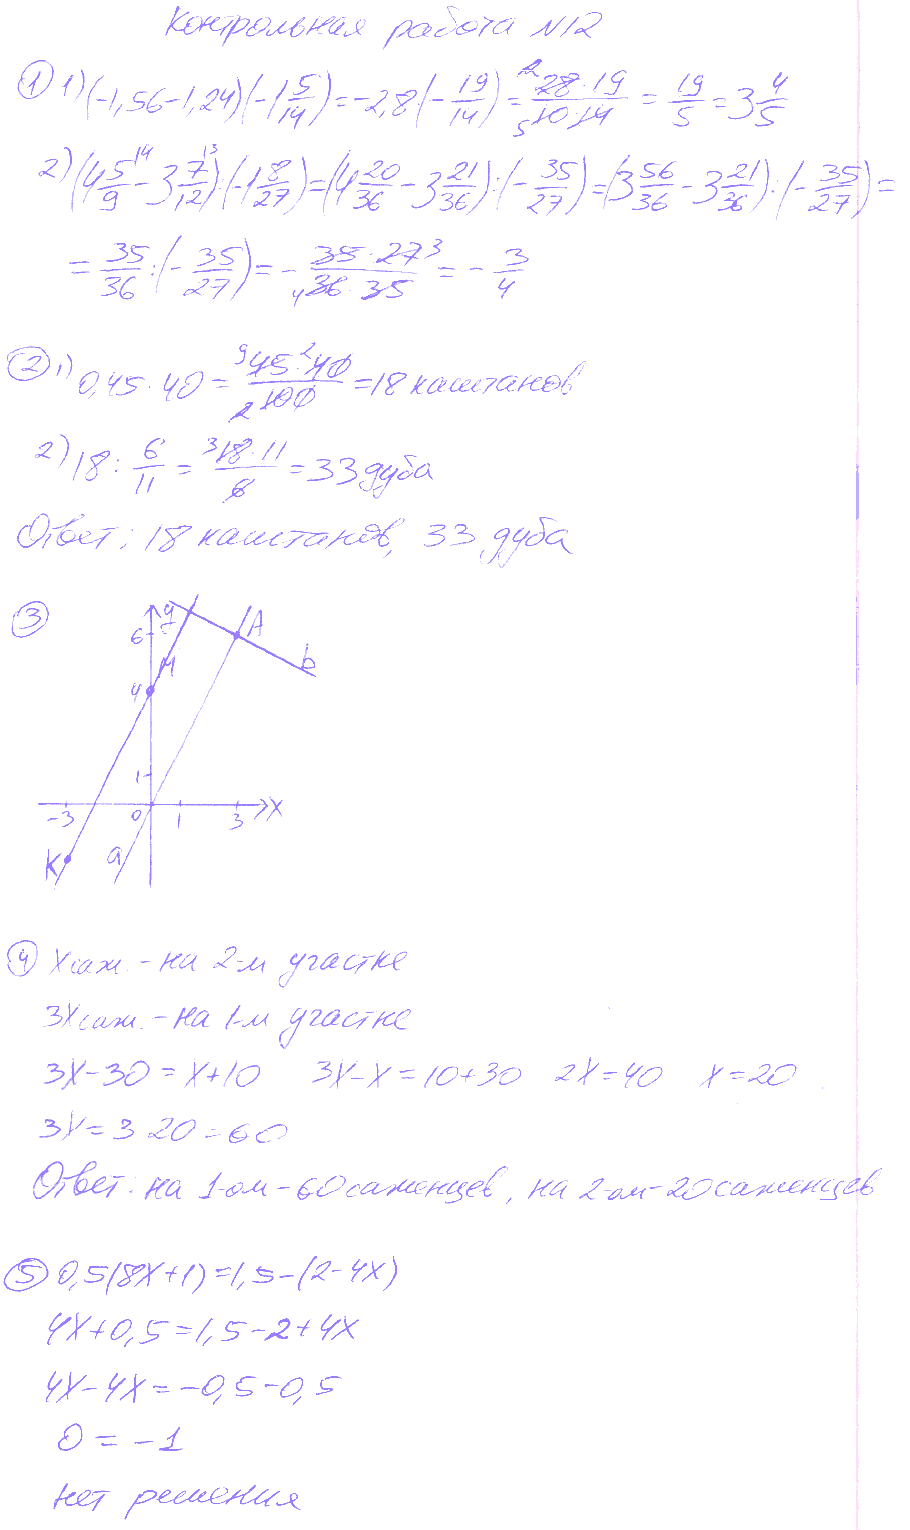 Контрольная работа №12
① 1) (-1,56-1,24)(-1 5/14)=-2,8(-19/14)=28·19/10·14=19/5=3 4/5
2) (4 5/9-3 7/12):(-1 8/27)=(4 20/36-3 21/36):(-35/27)=(3 56/36-3 21/36):(-35/27)=
=35/36:(-35/27)=-35·27/36·35=-3/4
② 1) 0,45·40=45·40/100=18 каштанов
2) 18:6/11=18·11/6=33 дуба
Ответ: 18 каштанов, 33 дуба
③
y
6
A
M
b
4
1
-3 0 1 3 X
K
a
④ X саж. - на 2-м участке
3X саж. - на 1-м участке
3X-30=X+10 3X-X=10+30 2X=40 X=20
3X=3 20=60
Ответ: на 1-ом-60 саженцев, на 2-ом-20 саженцев
⑤ 0,5(8X+1)=1,5-(2-4X)
4X+0,5=1,5-2+4X
4X-4X=-0,5-0,5
0=-1
нет решения